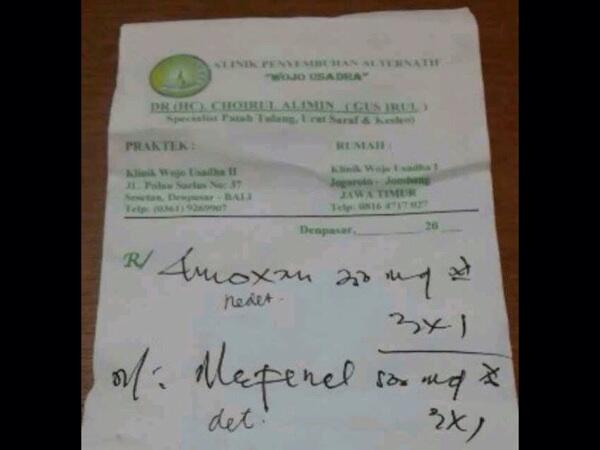 KLINIK PENYEMBUHAN ALTERNATIF
"WOJO USADHA"
DR (HC). CHOIRUL ALIMIN ( GUS IRUL )
Specialist Patah Tulang, Urat Saraf & Keseleo)
PRAKTEK : RUMAH :
Klinik Wojo Usadha II Klinik Wojo Usadha I
JL. Pulau No: 37 Jogoroto - Jombang
Sesetan, Denpasar - BALI JAWA TIMUR
Telp: (0361) 9269907 Telp: 0816 4717 027
Denpasar,________ 20 ___
R/ Amoxan mg
3x1
R/: Mefenel 500 mg
3x1